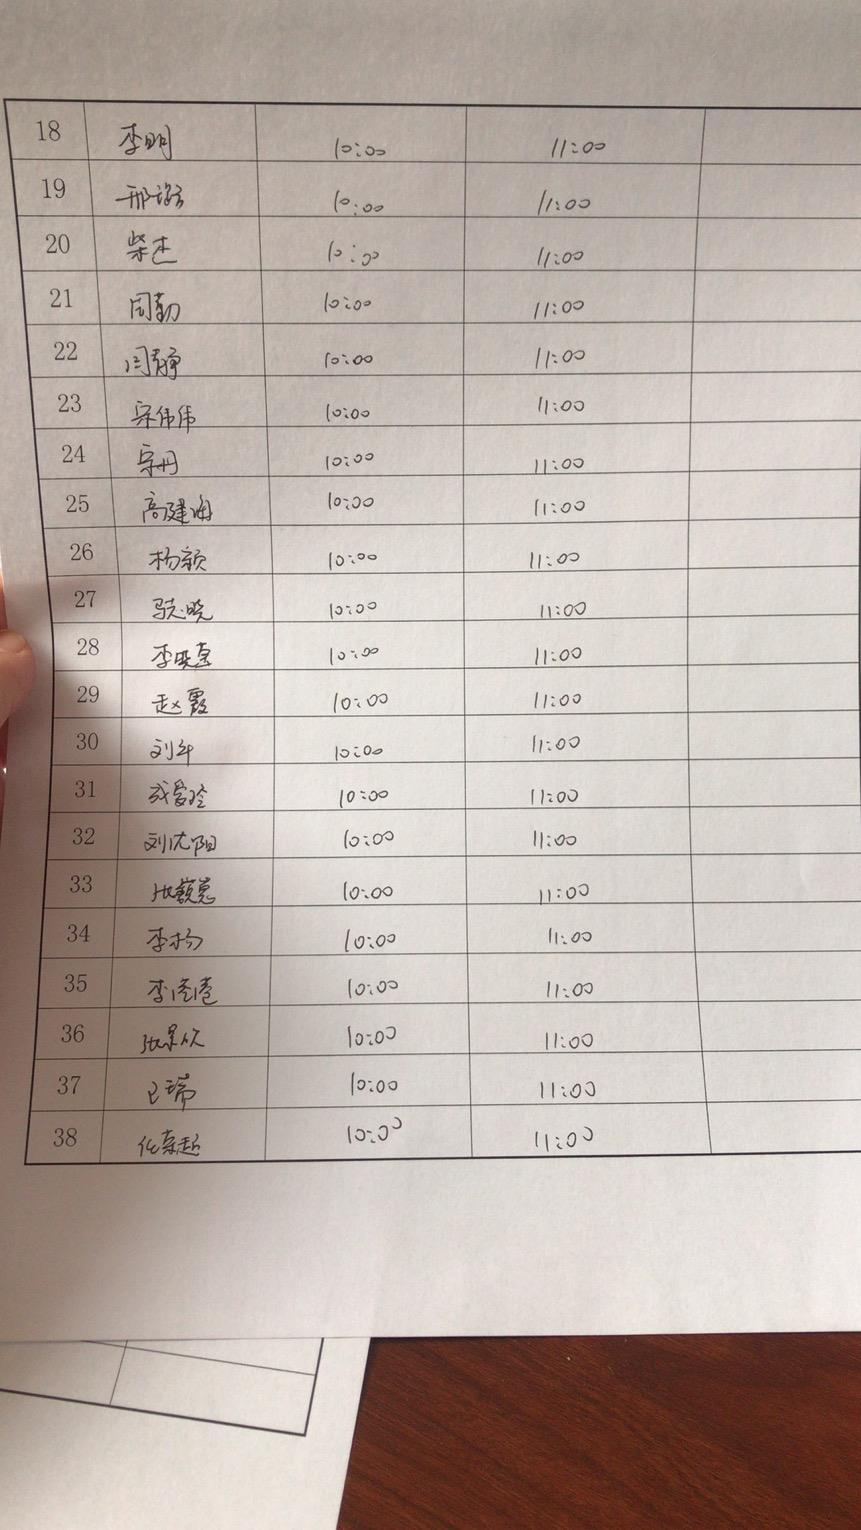 18 李明 10:00 11:00
19 10:00 11:00
20 柴杰 10:00 11:00
21 周勤 10:00 11:00
22 闫静 10:00 11:00
23 宋伟伟 10:00 11:00
24 宗丹 10:00 11:00
25 高建海 10:00 11:00
26 杨颖 10:00 11:00
27 晓 10:00 11:00
28 李晓惠 10:00 11:00
29 赵霞 10:00 11:00
30 刘 10:00 11:00
31 10:00 11:00
32 刘沈阳 10:00 11:00
33 张 10:00 11:00
34 李杨 10:00 11:00
35 李 10:00 11:00
36 张景 10:00 11:00
37 瑞 10:00 11:00
38 10:00 11:00